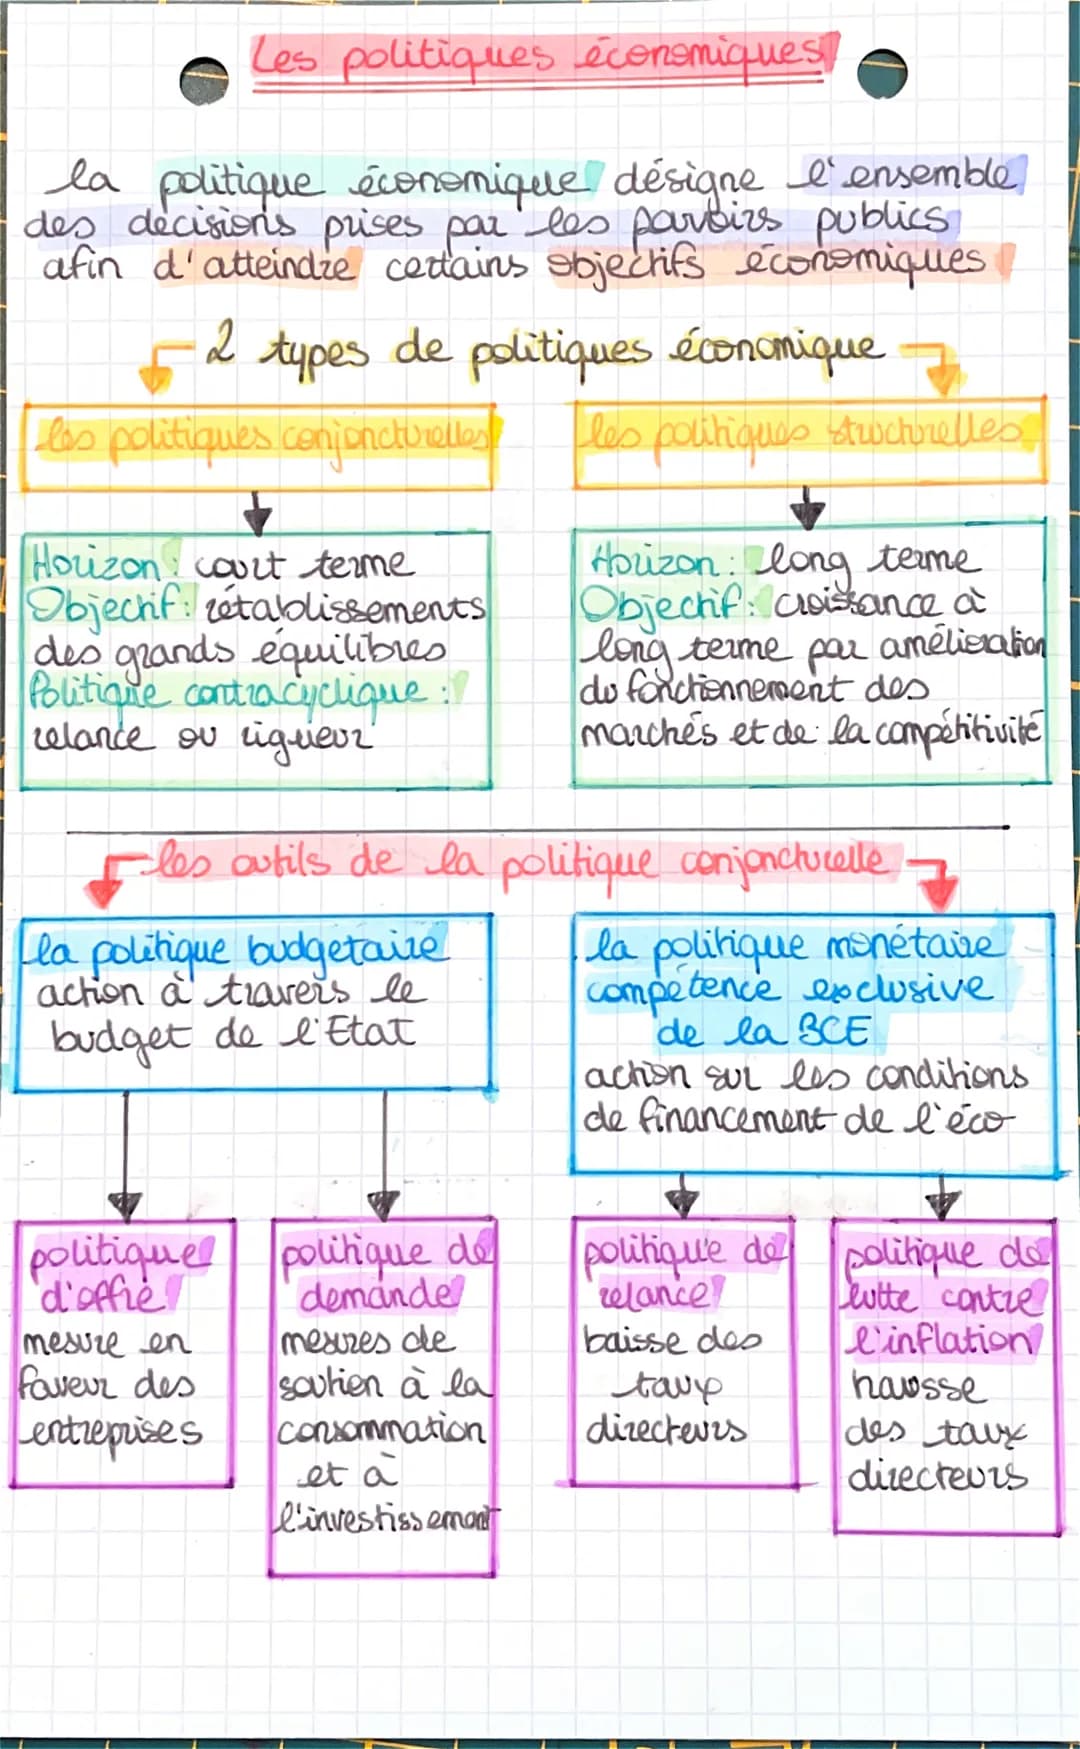 Les politiques économiques
la politique économique désigne l'ensemble
des décisions prises par les pouvoirs publics
afin d'atteindre certains objectifs économiques
2 types de politiques économique
les politiques conjoncturelles
les politiques structurelles
Horizon : court terme
Objectif : rétablissements
des grands équilibres
Politique contracyclique :
relance ou rigueur
Horizon : long terme
Objectif : croissance à
long terme par amélioration
du fonctionnement des
marchés et de la compétitivité
les outils de la politique conjoncturelle
la politique budgétaire
action à travers le
budget de l'Etat
la politique monétaire
compétence exclusive
de la BCE
action sur les conditions
de financement de l'éco
politique
d'offre
mesure en
faveur des
entreprises
politique de
demande
mesures de
soutien à la
consommation
et à
l'investissement
politique de
relance
baisse des
taux
directeurs
politique de
lutte contre
l'inflation
hausse
des taux
directeurs